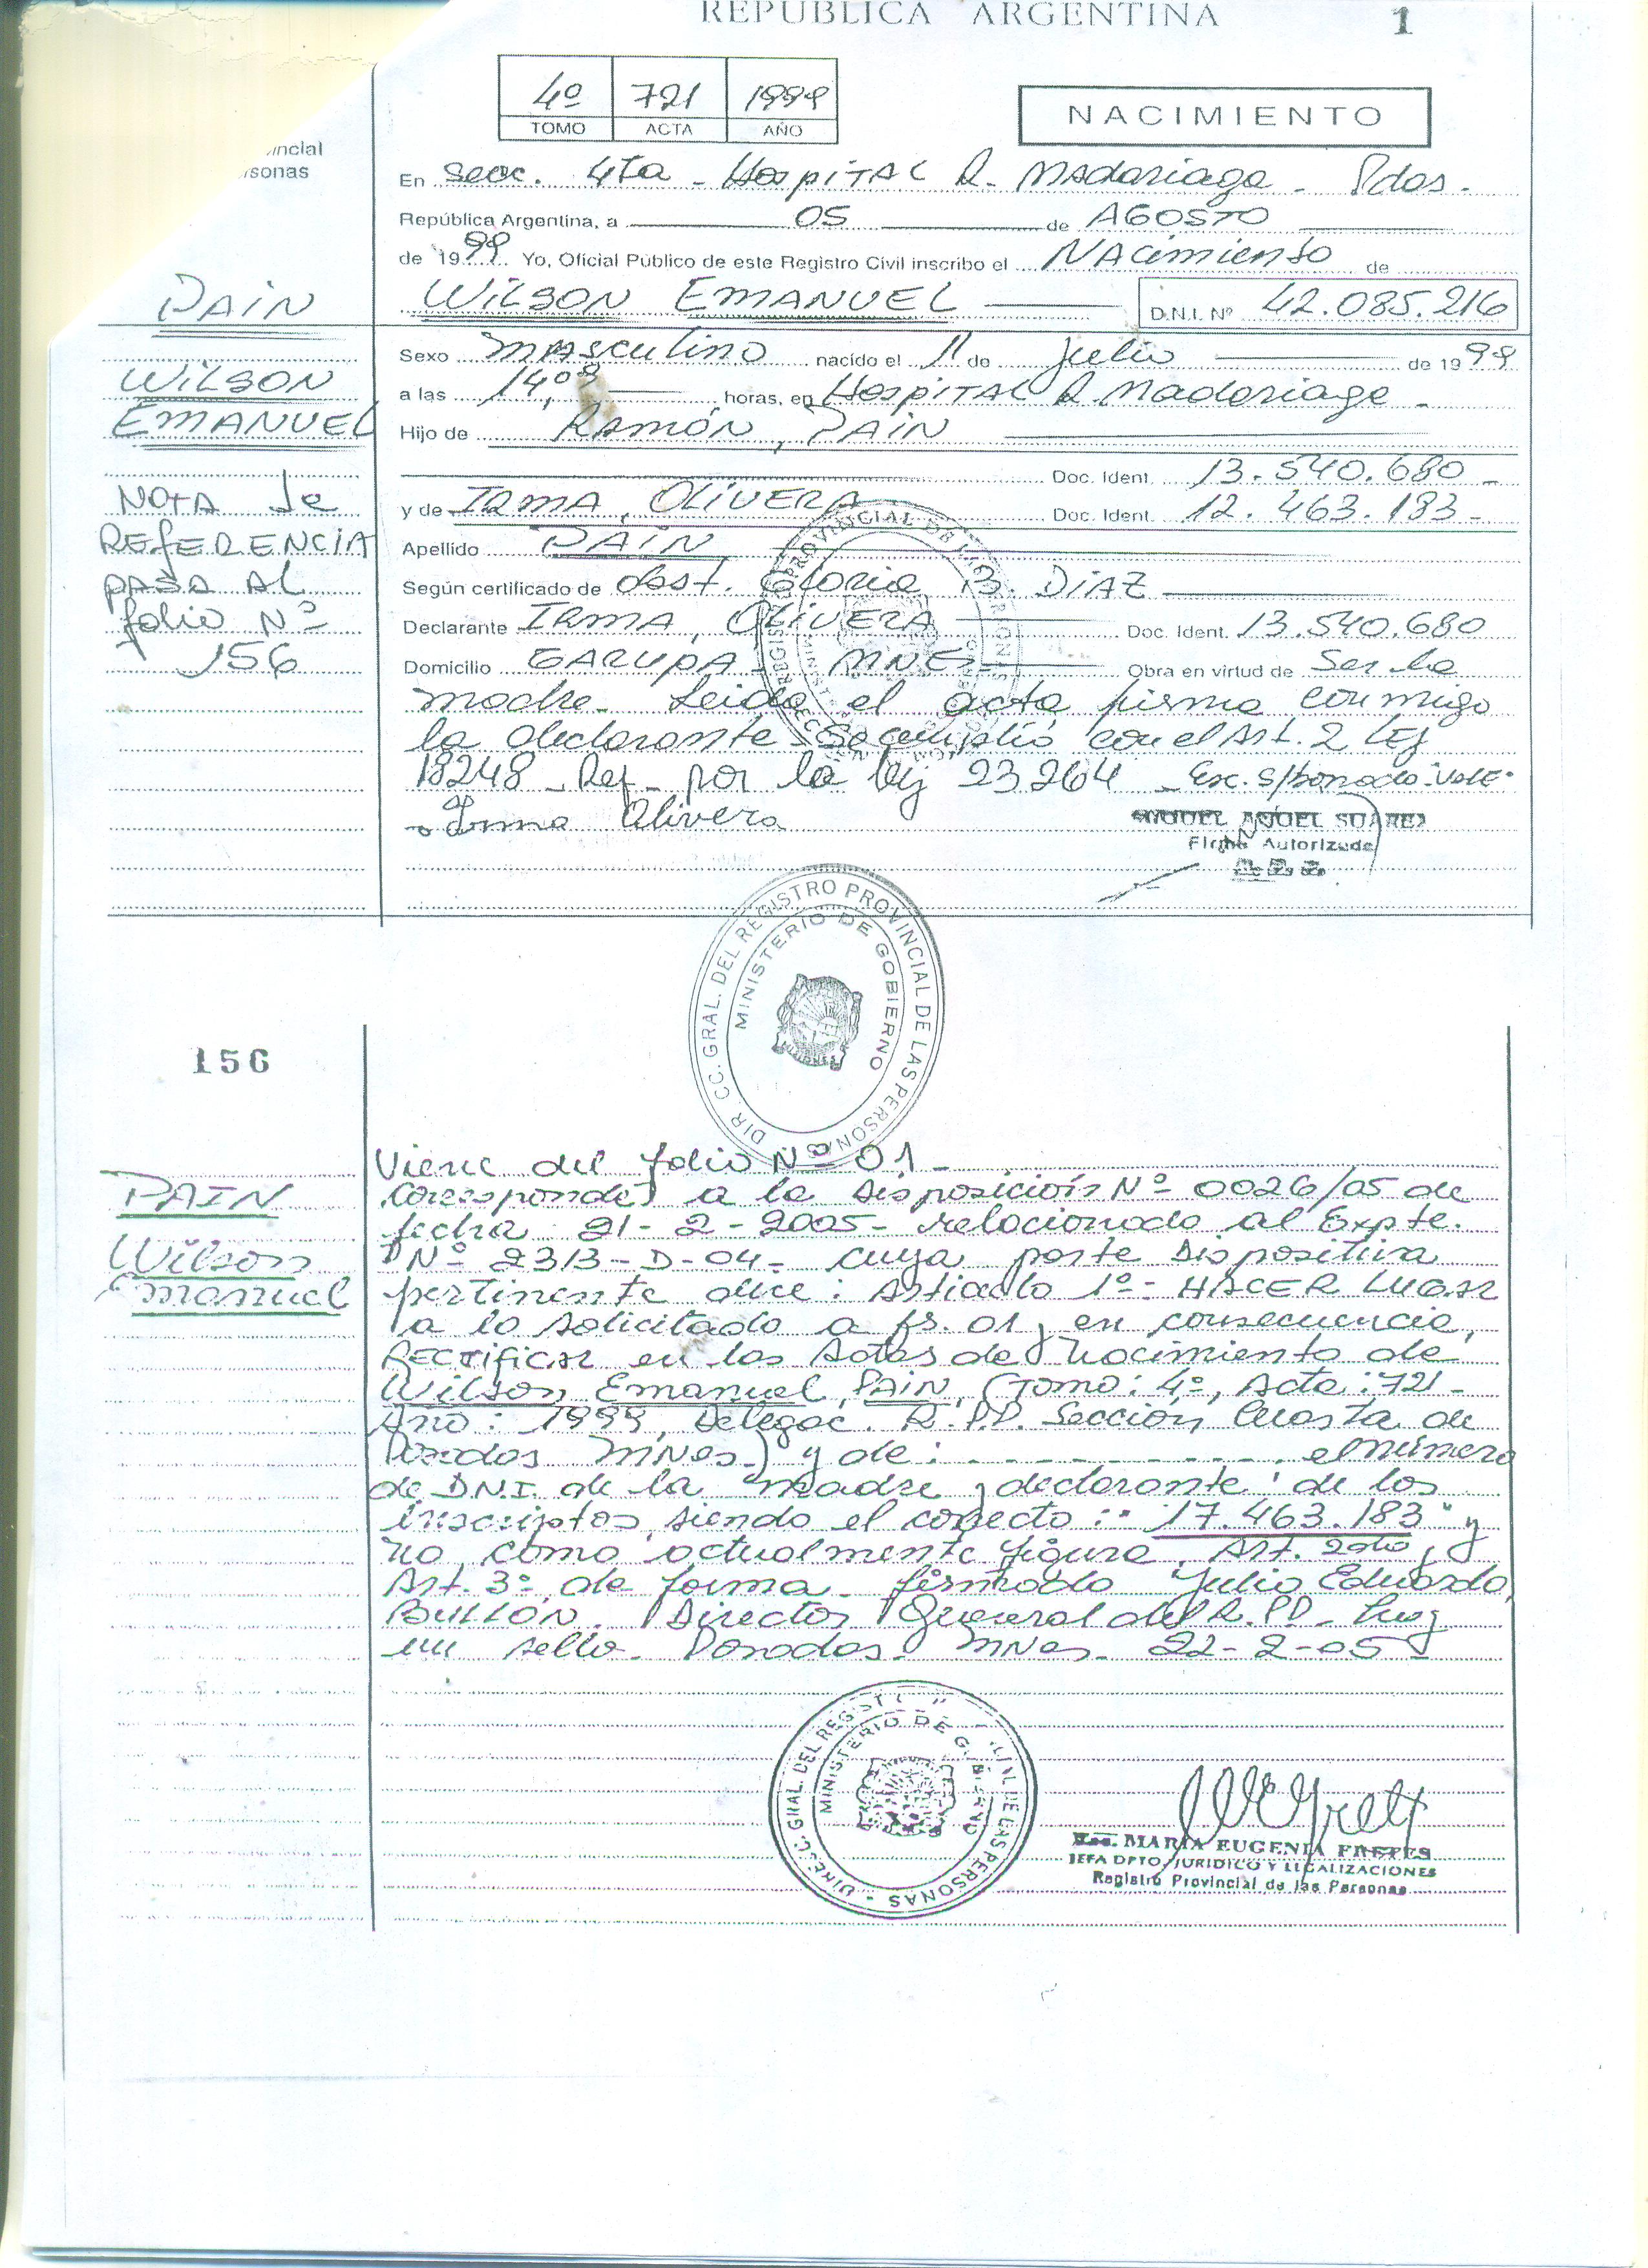 REPUBLICA ARGENTINA 1
4º 721 1999
TOMO ACTA AÑO
NACIMIENTO
incial
rsonas
En Secc. 4ta - Hospital R. Madariaga - Pdas.
República Argentina, a 05 de AGOSTO
de 1999 Yo, Oficial Público de este Registro Civil inscribo el Nacimiento de
PAIN
WILSON EMANUEL D.N.I. Nº 42.085.216
Sexo masculino nacido el 11 de Julio de 1999
WILSON
a las 14,08 horas, en Hospital R. Madariaga -
EMANUEL
Hijo de RAMÓN, PAIN
Doc. Ident. 13.540.680 -
y de IRMA, OLIVERA Doc. Ident. 12.463.183 -
NOTA de
REFERENCIA
PASA AL
folio Nº
156
Apellido PAIN
Según certificado de Obst. Gloria B. DIAZ
Declarante IRMA, OLIVERA Doc. Ident. 13.540.680
Domicilio GARUPA - MNES Obra en virtud de Ser la
madre - Leida el acta firma conmigo
la declarante - Se cumplió con el Art. 2 Ley
18248 - Ref - por la ley 23264 - Esc. s/borrado - Vale -
Irma Olivera
MIGUEL ANGEL SUAREZ
Firma Autorizada
DIR. CC. GRAL. DEL REGISTRO PROVINCIAL DE LAS PERSONAS
MINISTERIO DE GOBIERNO
156
PAIN
Wilson
Emanuel
Viene del folio Nº 01 -
Corresponde a la Disposición Nº 0026/05 de
fecha 21-2-2005 - relacionado al Expte.
Nº 2313-D-04 - cuya parte Dispositiva
pertinente dice: Articulo 1º - HACER LUGAR
a lo solicitado a fs. 01 y en consecuencia,
RECTIFICAR en las Actas de Nacimiento de
Wilson Emanuel PAIN, (Tomo: 4º, Acta: 721 -
Año: 1999, Delegac. R.P.P. Sección Cuarta de
Posadas MNes.) y de: el número
de D.N.I. de la madre y declarante de los
inscriptos, siendo el correcto: "17.463.183" y
no como actualmente figura. Art. 2do y
Art. 3º de forma - firmado Julio Eduardo
BULLON. Director General del R.P.P - Hay
un sello - Posadas - MNes - 22-2-05 -
MINISTERIO DE
MARIA EUGENIA FRETES
JEFA DPTO. JURIDICO Y LEGALIZACIONES
Registro Provincial de las Personas